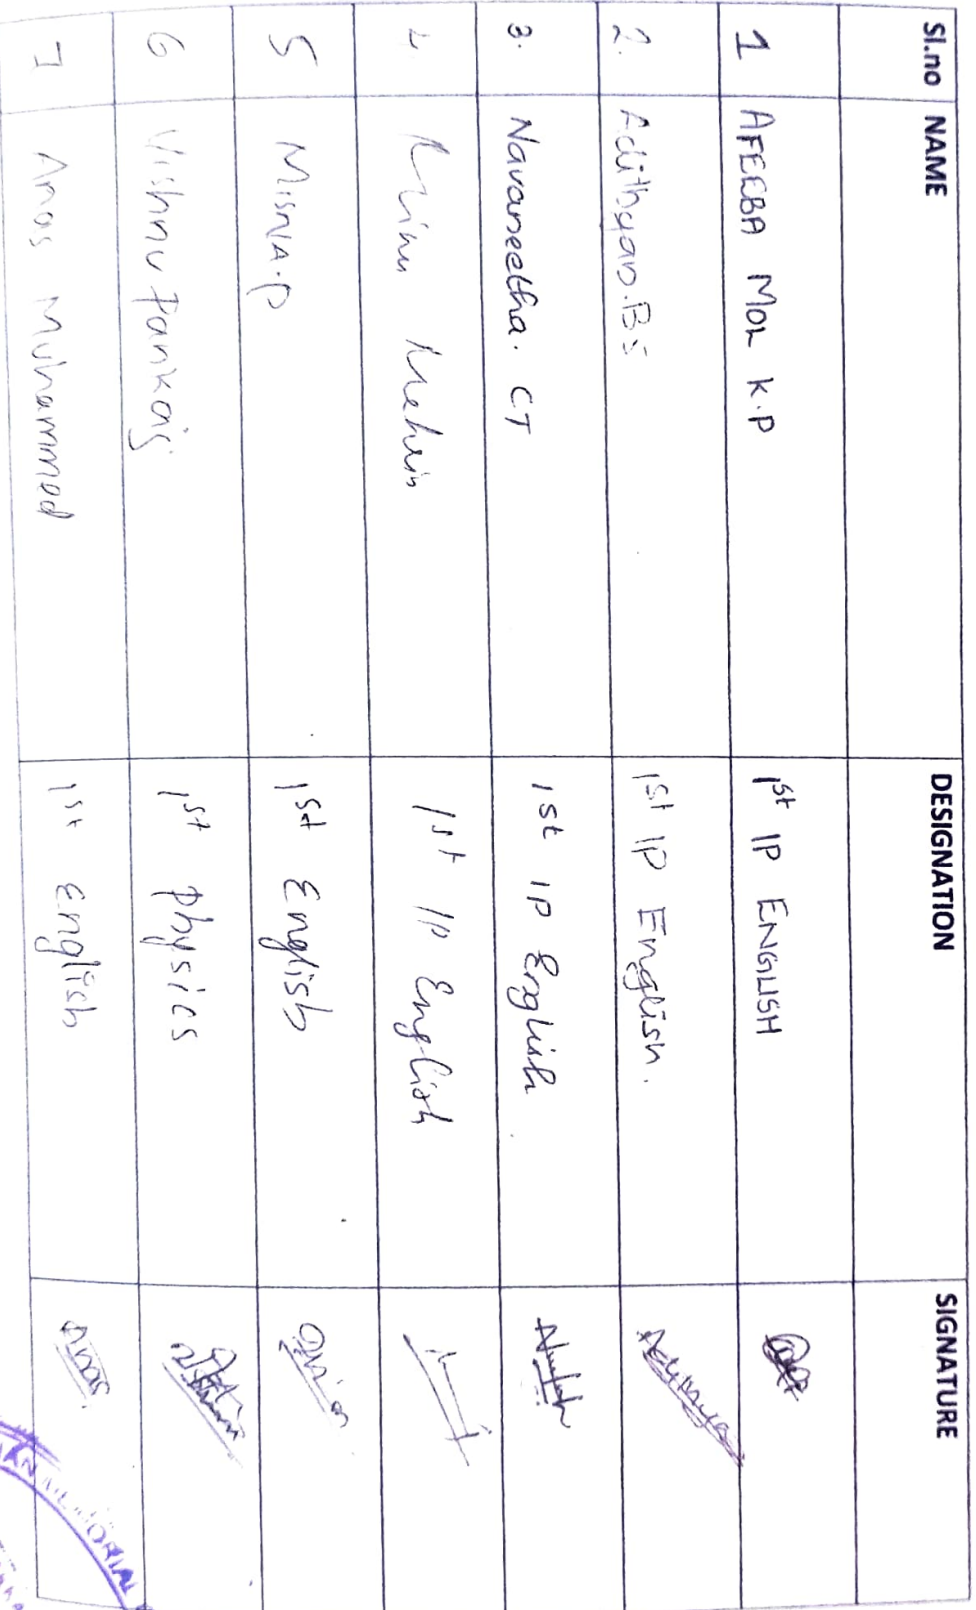 Sl.no NAME DESIGNATION SIGNATURE
1 AFEEBA MOL K.P 1st IP ENGLISH
2. Adithyan.BS 1st IP English.
3. Navaneetha. CT 1st IP English
4 1st IP English
5 MISNIA.P 1st English
6 Vishnu Pankaj 1st physics
7 Anas Muhammed 1st English Anas
MEMORIAL